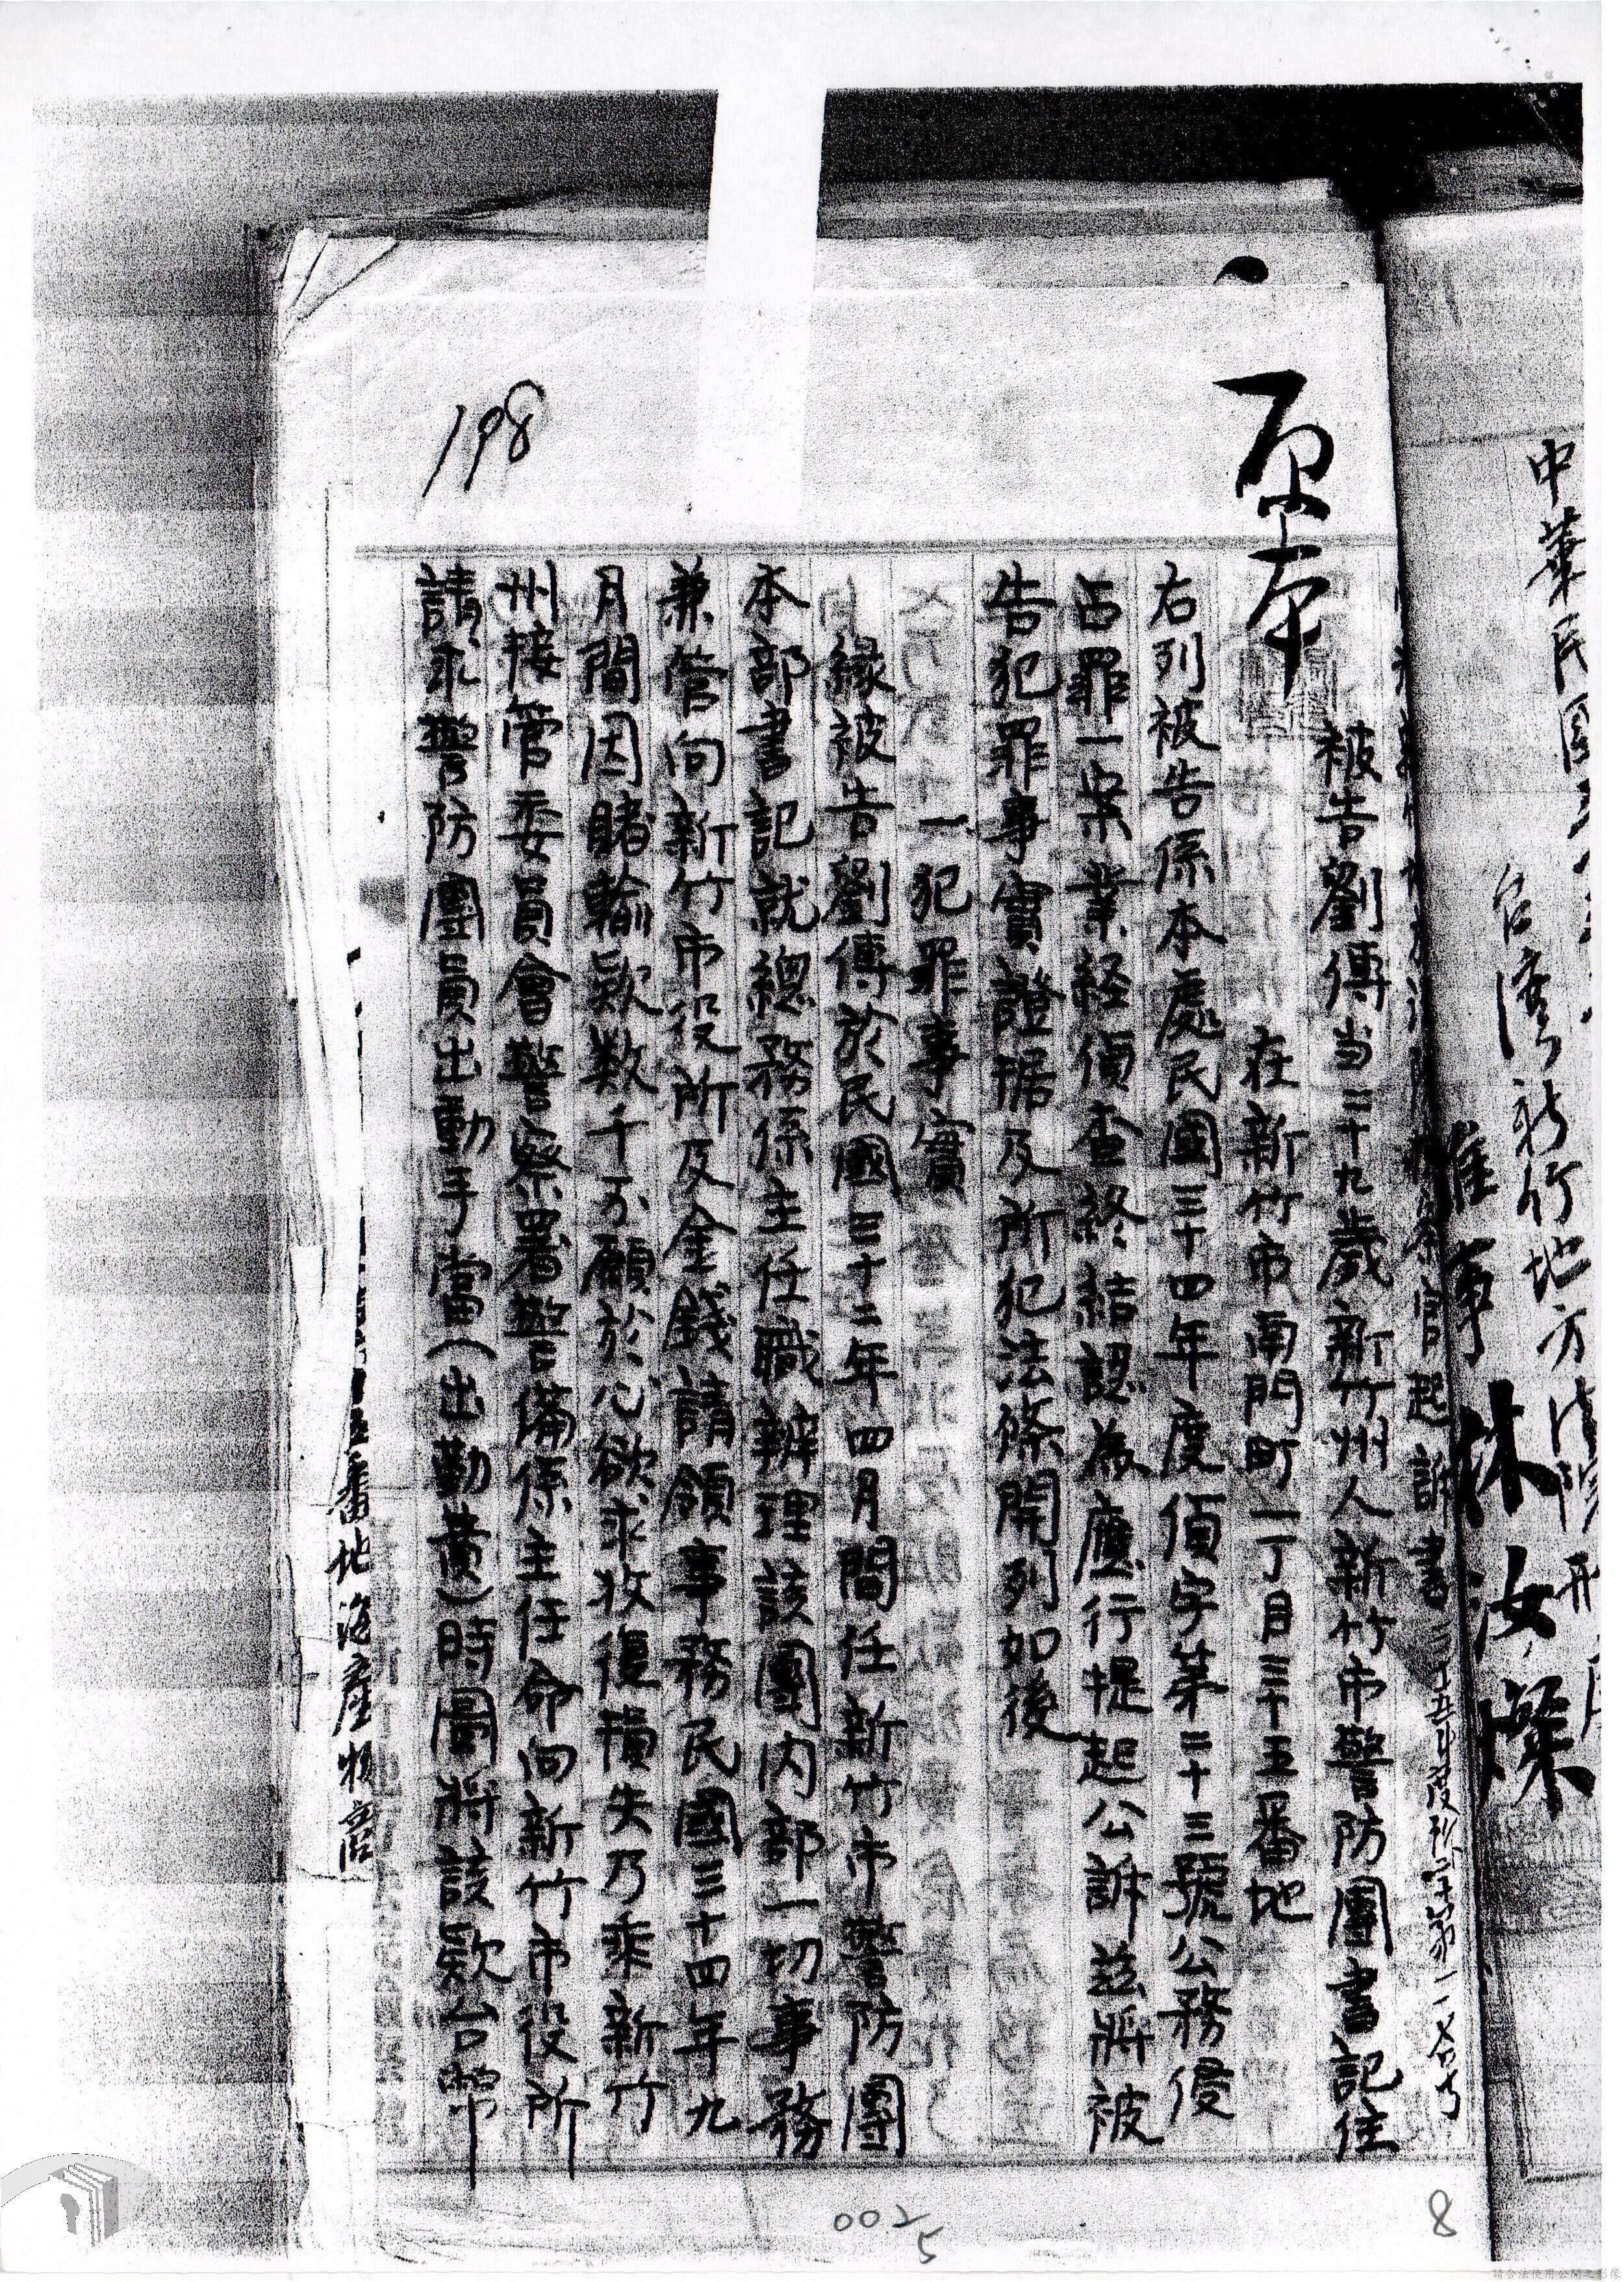 中華民國
台灣新竹地方法院刑
推事 林汝燦
察官起訴書 三十五年度
原本
被告劉傳当三十九歲新竹州人新竹市警防團書記住
在新竹市南門町一丁目三十五番地
右列被告係本處民國三十四年度偵字第二十三號公務侵
占罪一案業経偵查終結認為應行提起公訴茲將被
告犯罪事實證据及所犯法條開列如後
一犯罪事實
緣被告劉傳於民國三十二年四月間任新竹市警防團
本部書記就總務係主任職辦理該團內部一切事務
兼管向新竹市役所及金錢請領事務民國三十四年九
月間因賭輸款数千不願於心欲求收復損失乃乘新竹
州接管委員會警察署警备係主任命向新竹市役所
請求警防團員出動手當(出勤費)時圖將該款台幣
番地海產物商
198
002
5
8
請合法使用公開之影像